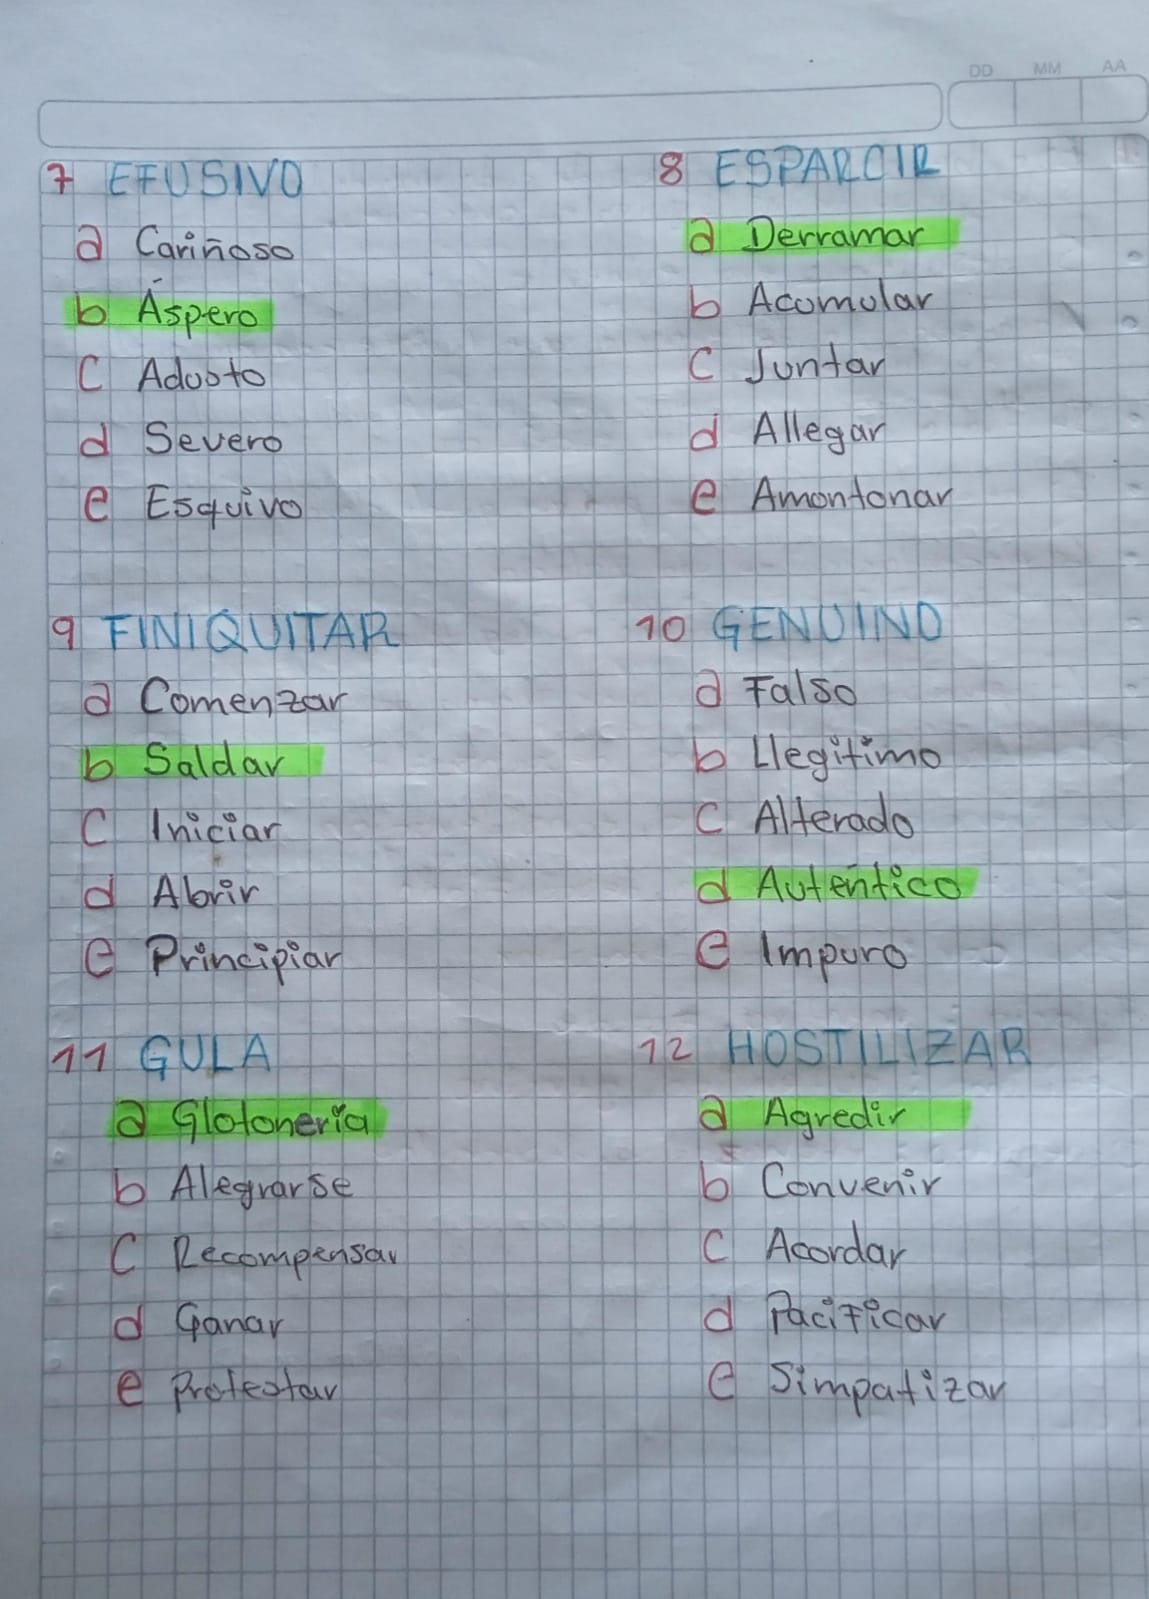 DD MM AA
7 EFUSIVO
a Cariñoso
b Áspero
c Adusto
d Severo
e Esquivo
8 ESPARCIR
a Derramar
b Acomular
c Juntar
d Allegar
e Amontonar
9 FINIQUITAR
a Comenzar
b Saldar
c Iniciar
d Abrir
e Principiar
10 GENUINO
a Falso
b Llegitimo
c Alterado
d Auténtico
e Impuro
11 GULA
a Glotonería
b Alegrarse
c Recompensar
d Ganar
e Protestar
12 HOSTILIZAR
a Agredir
b Convenir
c Acordar
d Pacificar
e Simpatizar